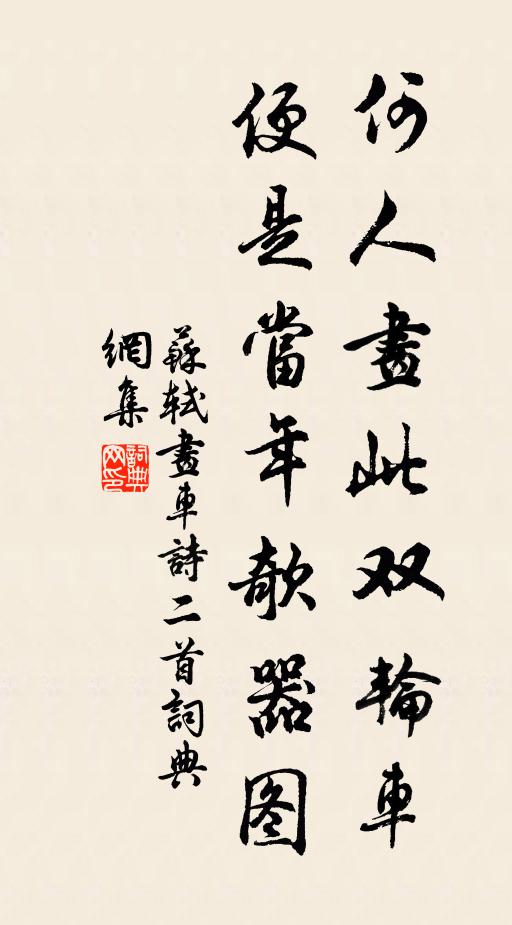 何人畫此双輪車
便是當年欹器图
蘇軾畫車詩二首詞典
網集
詞典
网印